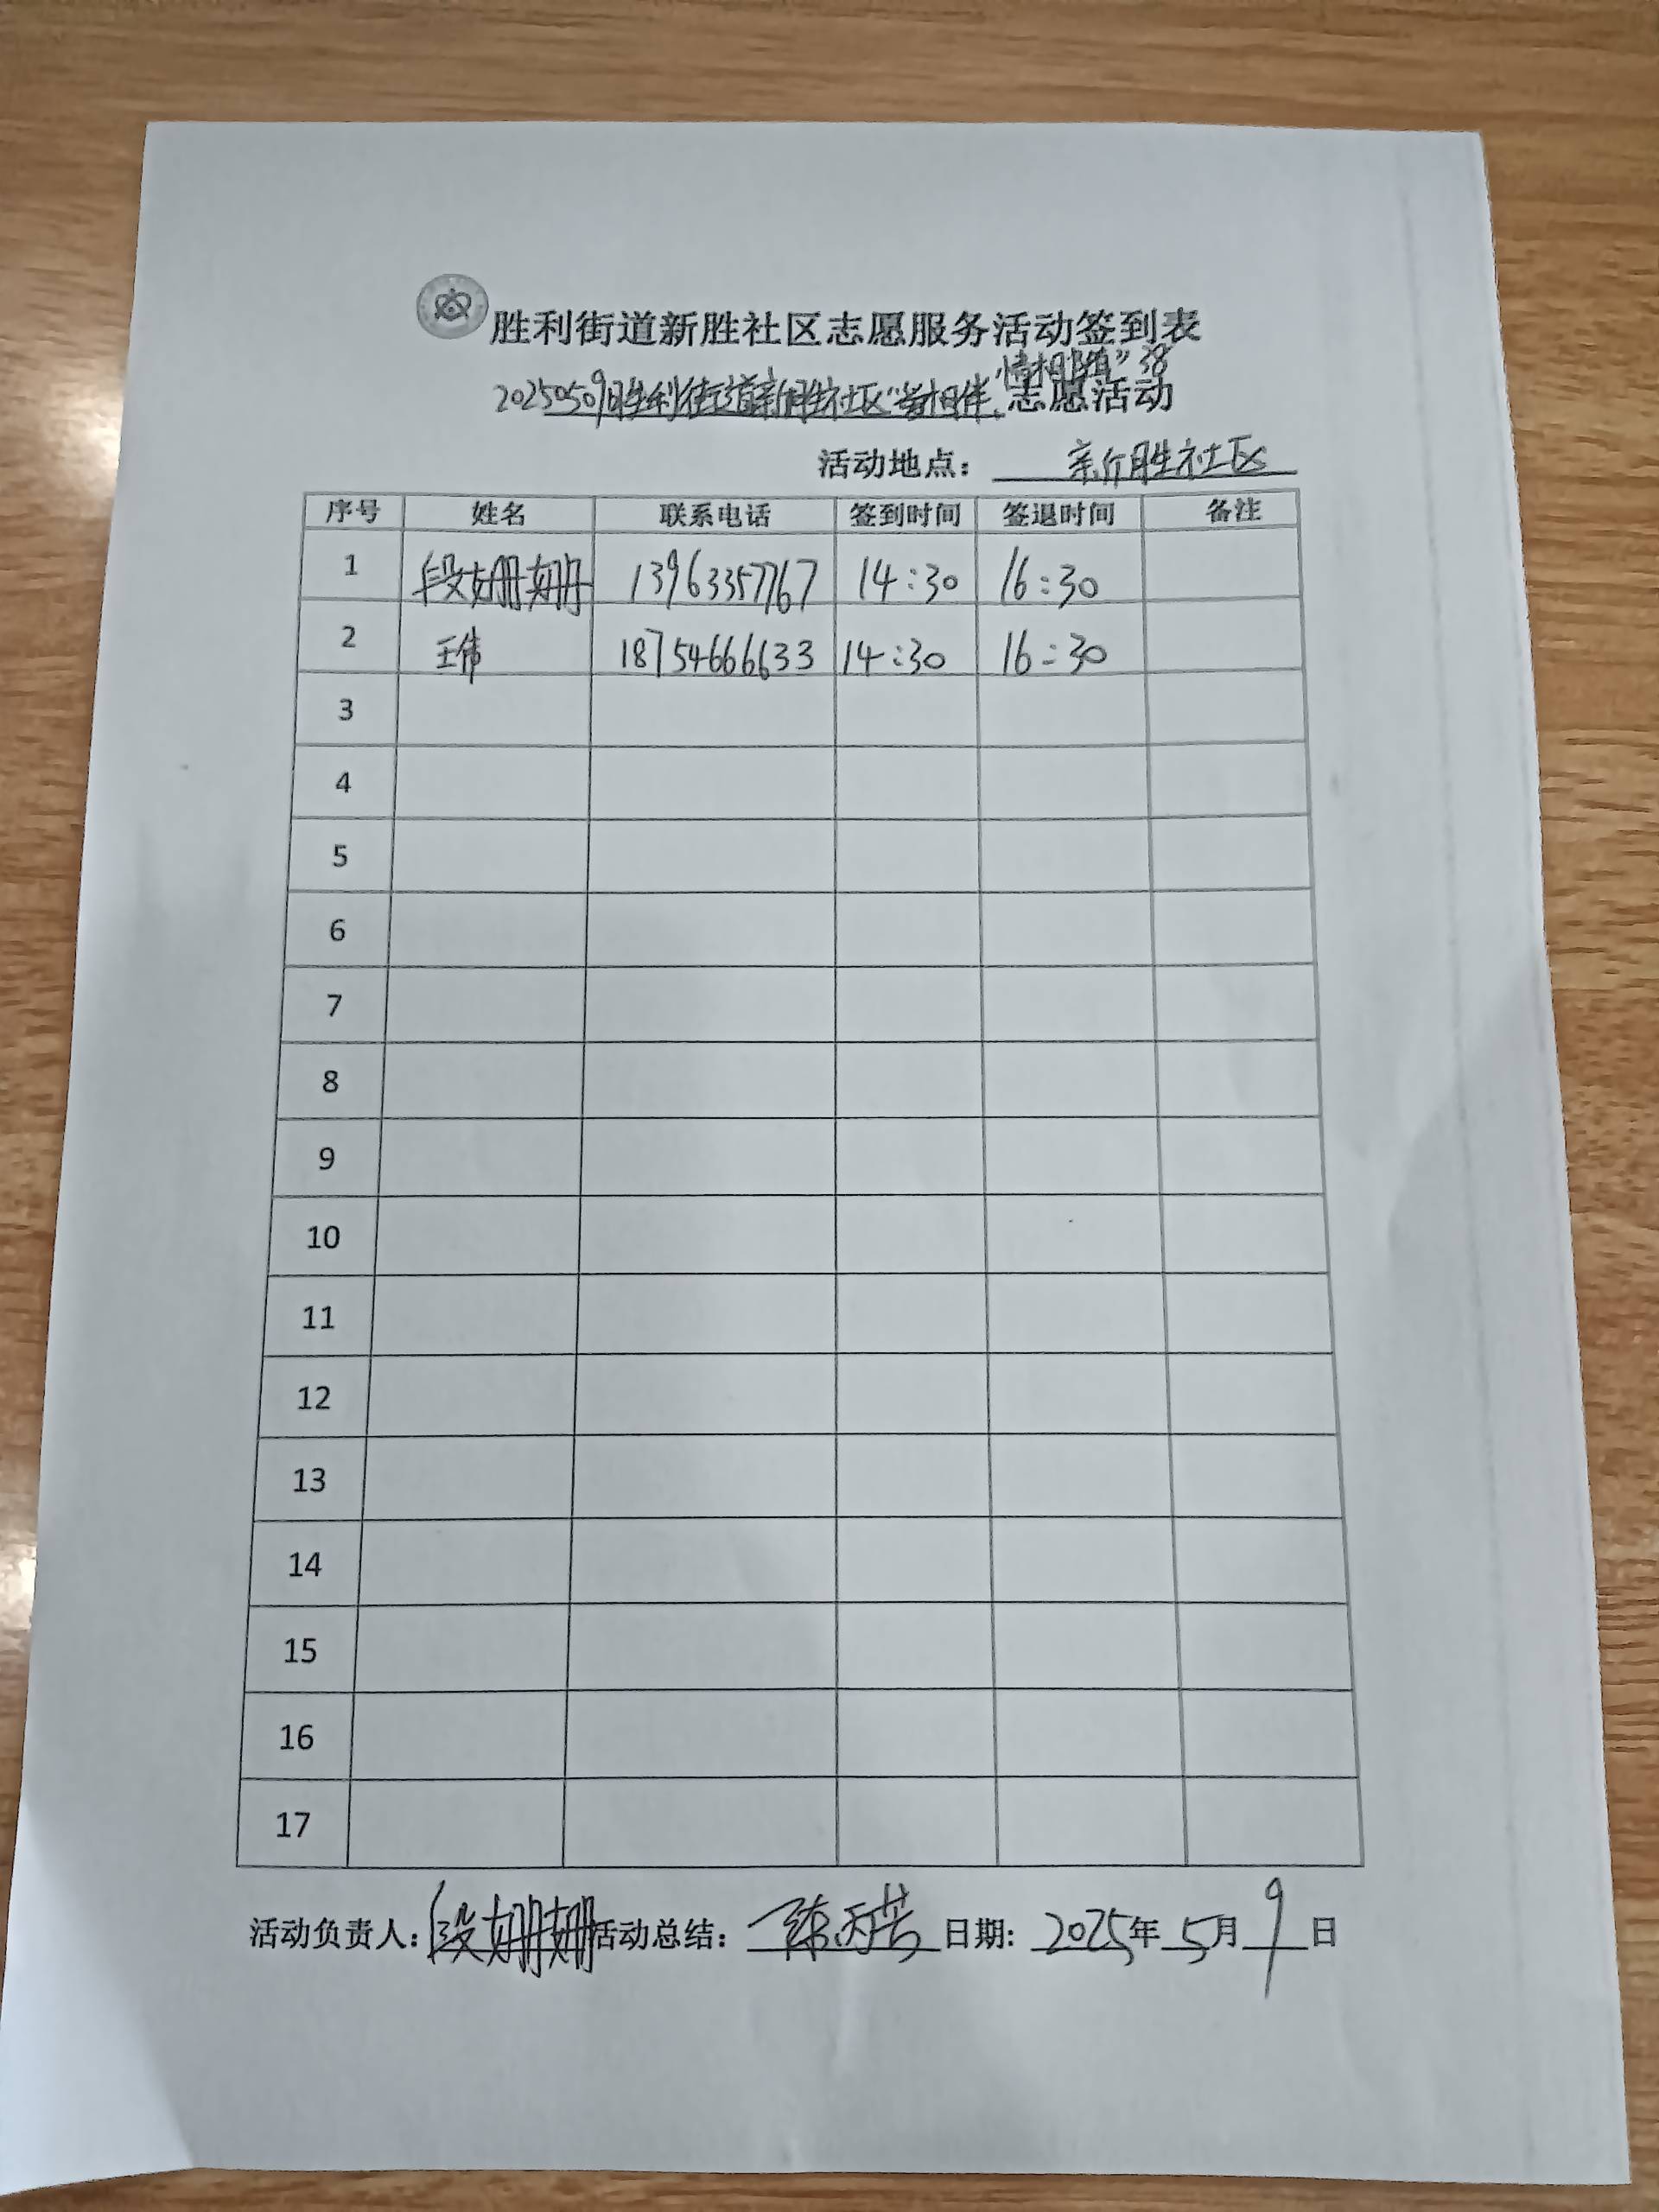 胜利街道新胜社区志愿服务活动签到表
情相随”38
20250509胜利街道新胜社区“相伴 志愿活动
活动地点： 新胜社区
序号 姓名 联系电话 签到时间 签退时间 备注
1 段姗姗 13963357767 14:30 16:30
2 王伟 18754666633 14:30 16:30
3
4
5
6
7
8
9
10
11
12
13
14
15
16
17
活动负责人：段姗姗 活动总结： 陈芳 日期: 2025年 5月 9 日